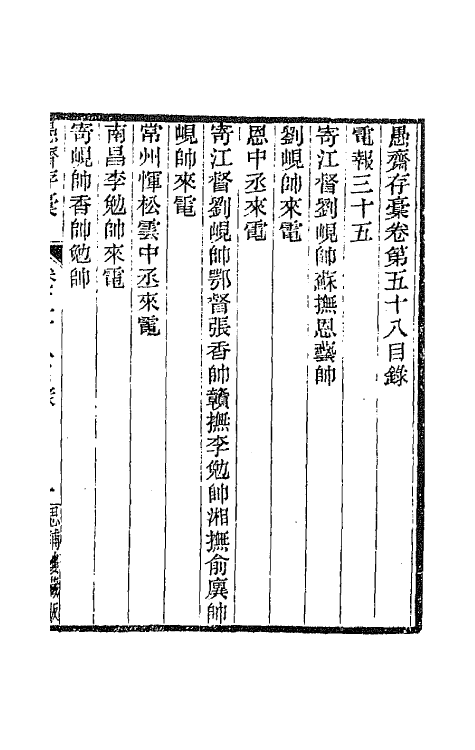 愚齋存稾卷第五十八目錄
電報三十五
寄江督劉峴帥蘇撫恩藝帥
劉峴帥來電
恩中丞來電
寄江督劉峴帥鄂督張香帥贛撫李勉帥湘撫俞廙帥
峴帥來電
常州惲松雲中丞來電
南昌李勉帥來電
寄峴帥香帥勉帥
愚齋存稾